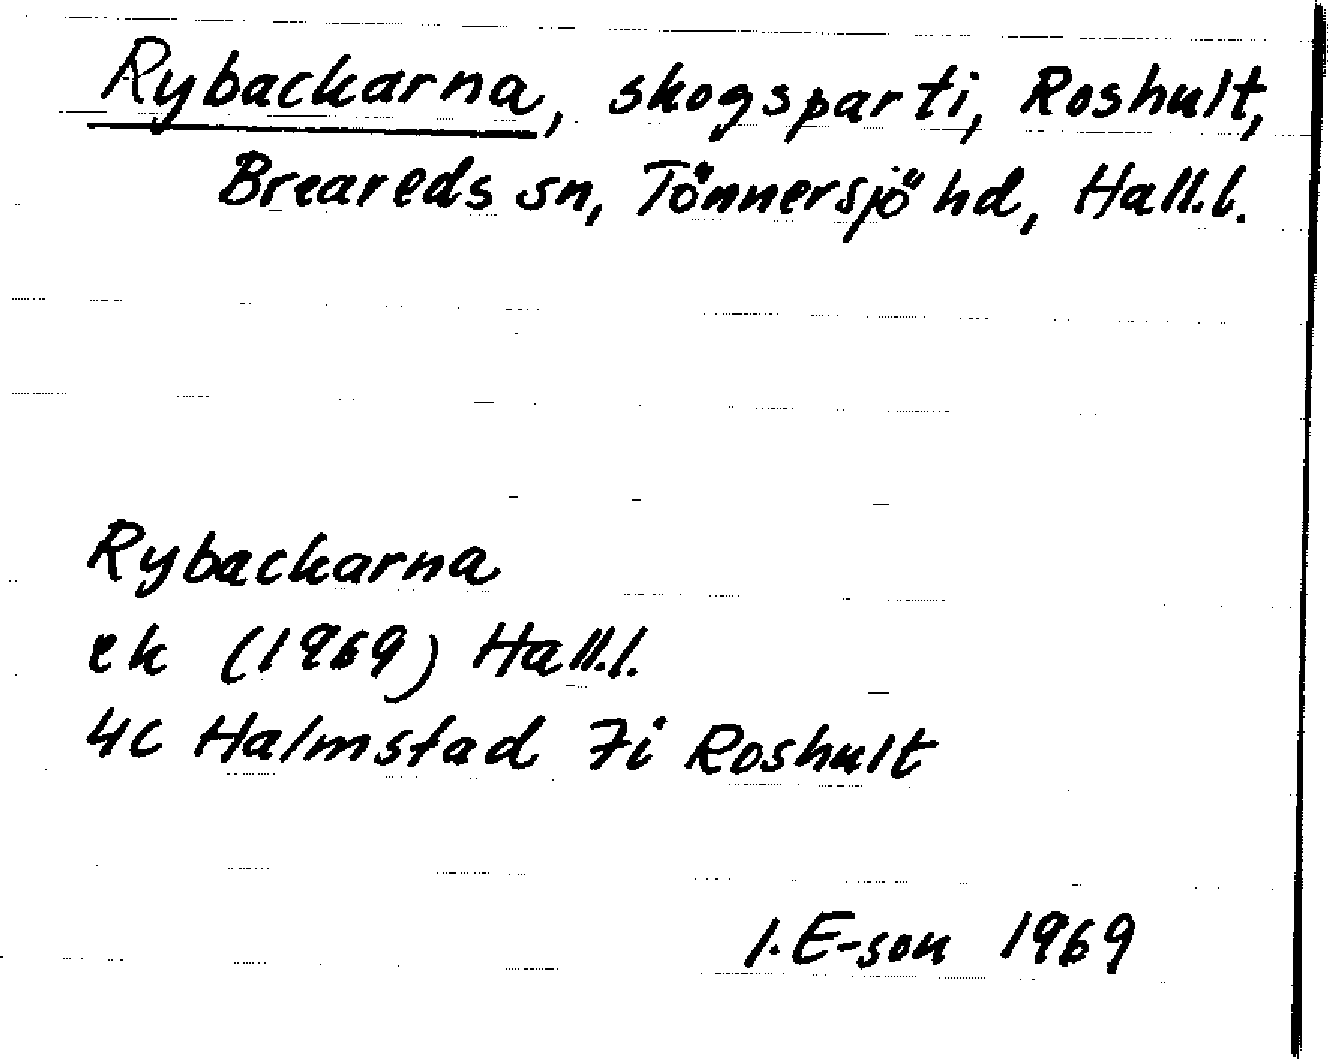 Rybackarna, skogsparti, Roshult,
Breareds sn, Tönnersjö hd, Hall.l.
Rybackarna
ek (1969) Hall.l.
4C Halmstad 7i Roshult
I. E-son 1969